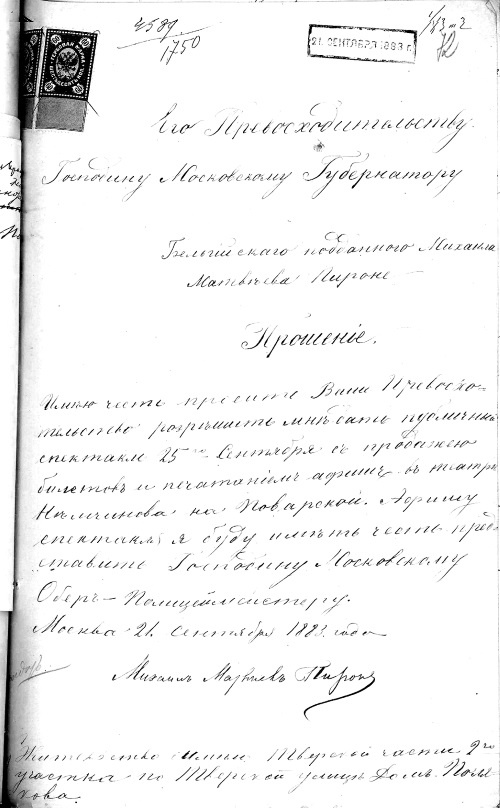 4589
1750
21 СЕНТЯБРЯ 1883 г.
72
Его Превосходительству
Господину Московскому Губернатору
Бельгійскаго подданнаго Михаила
Матвѣева Пироне
Прошеніе.
Имѣю честь просить Ваше Превосхо-
тельство разрѣшить мнѣ дать публичный
спектакль 25го Сентября съ продажею
билетовъ и печатаніемъ афишъ въ театрѣ
Нѣмчинова на Поварской. Афишу
спектакля я буду имѣть честь пред-
ставить Господину Московскому
Оберъ-Полицеймейстеру.
Москва 21 Сентября 1883 года
Михаилъ Матвѣевъ Пироне
Жительство имѣю Тверской части 2го
участка по Тверской улицѣ домъ Поля-
кова.